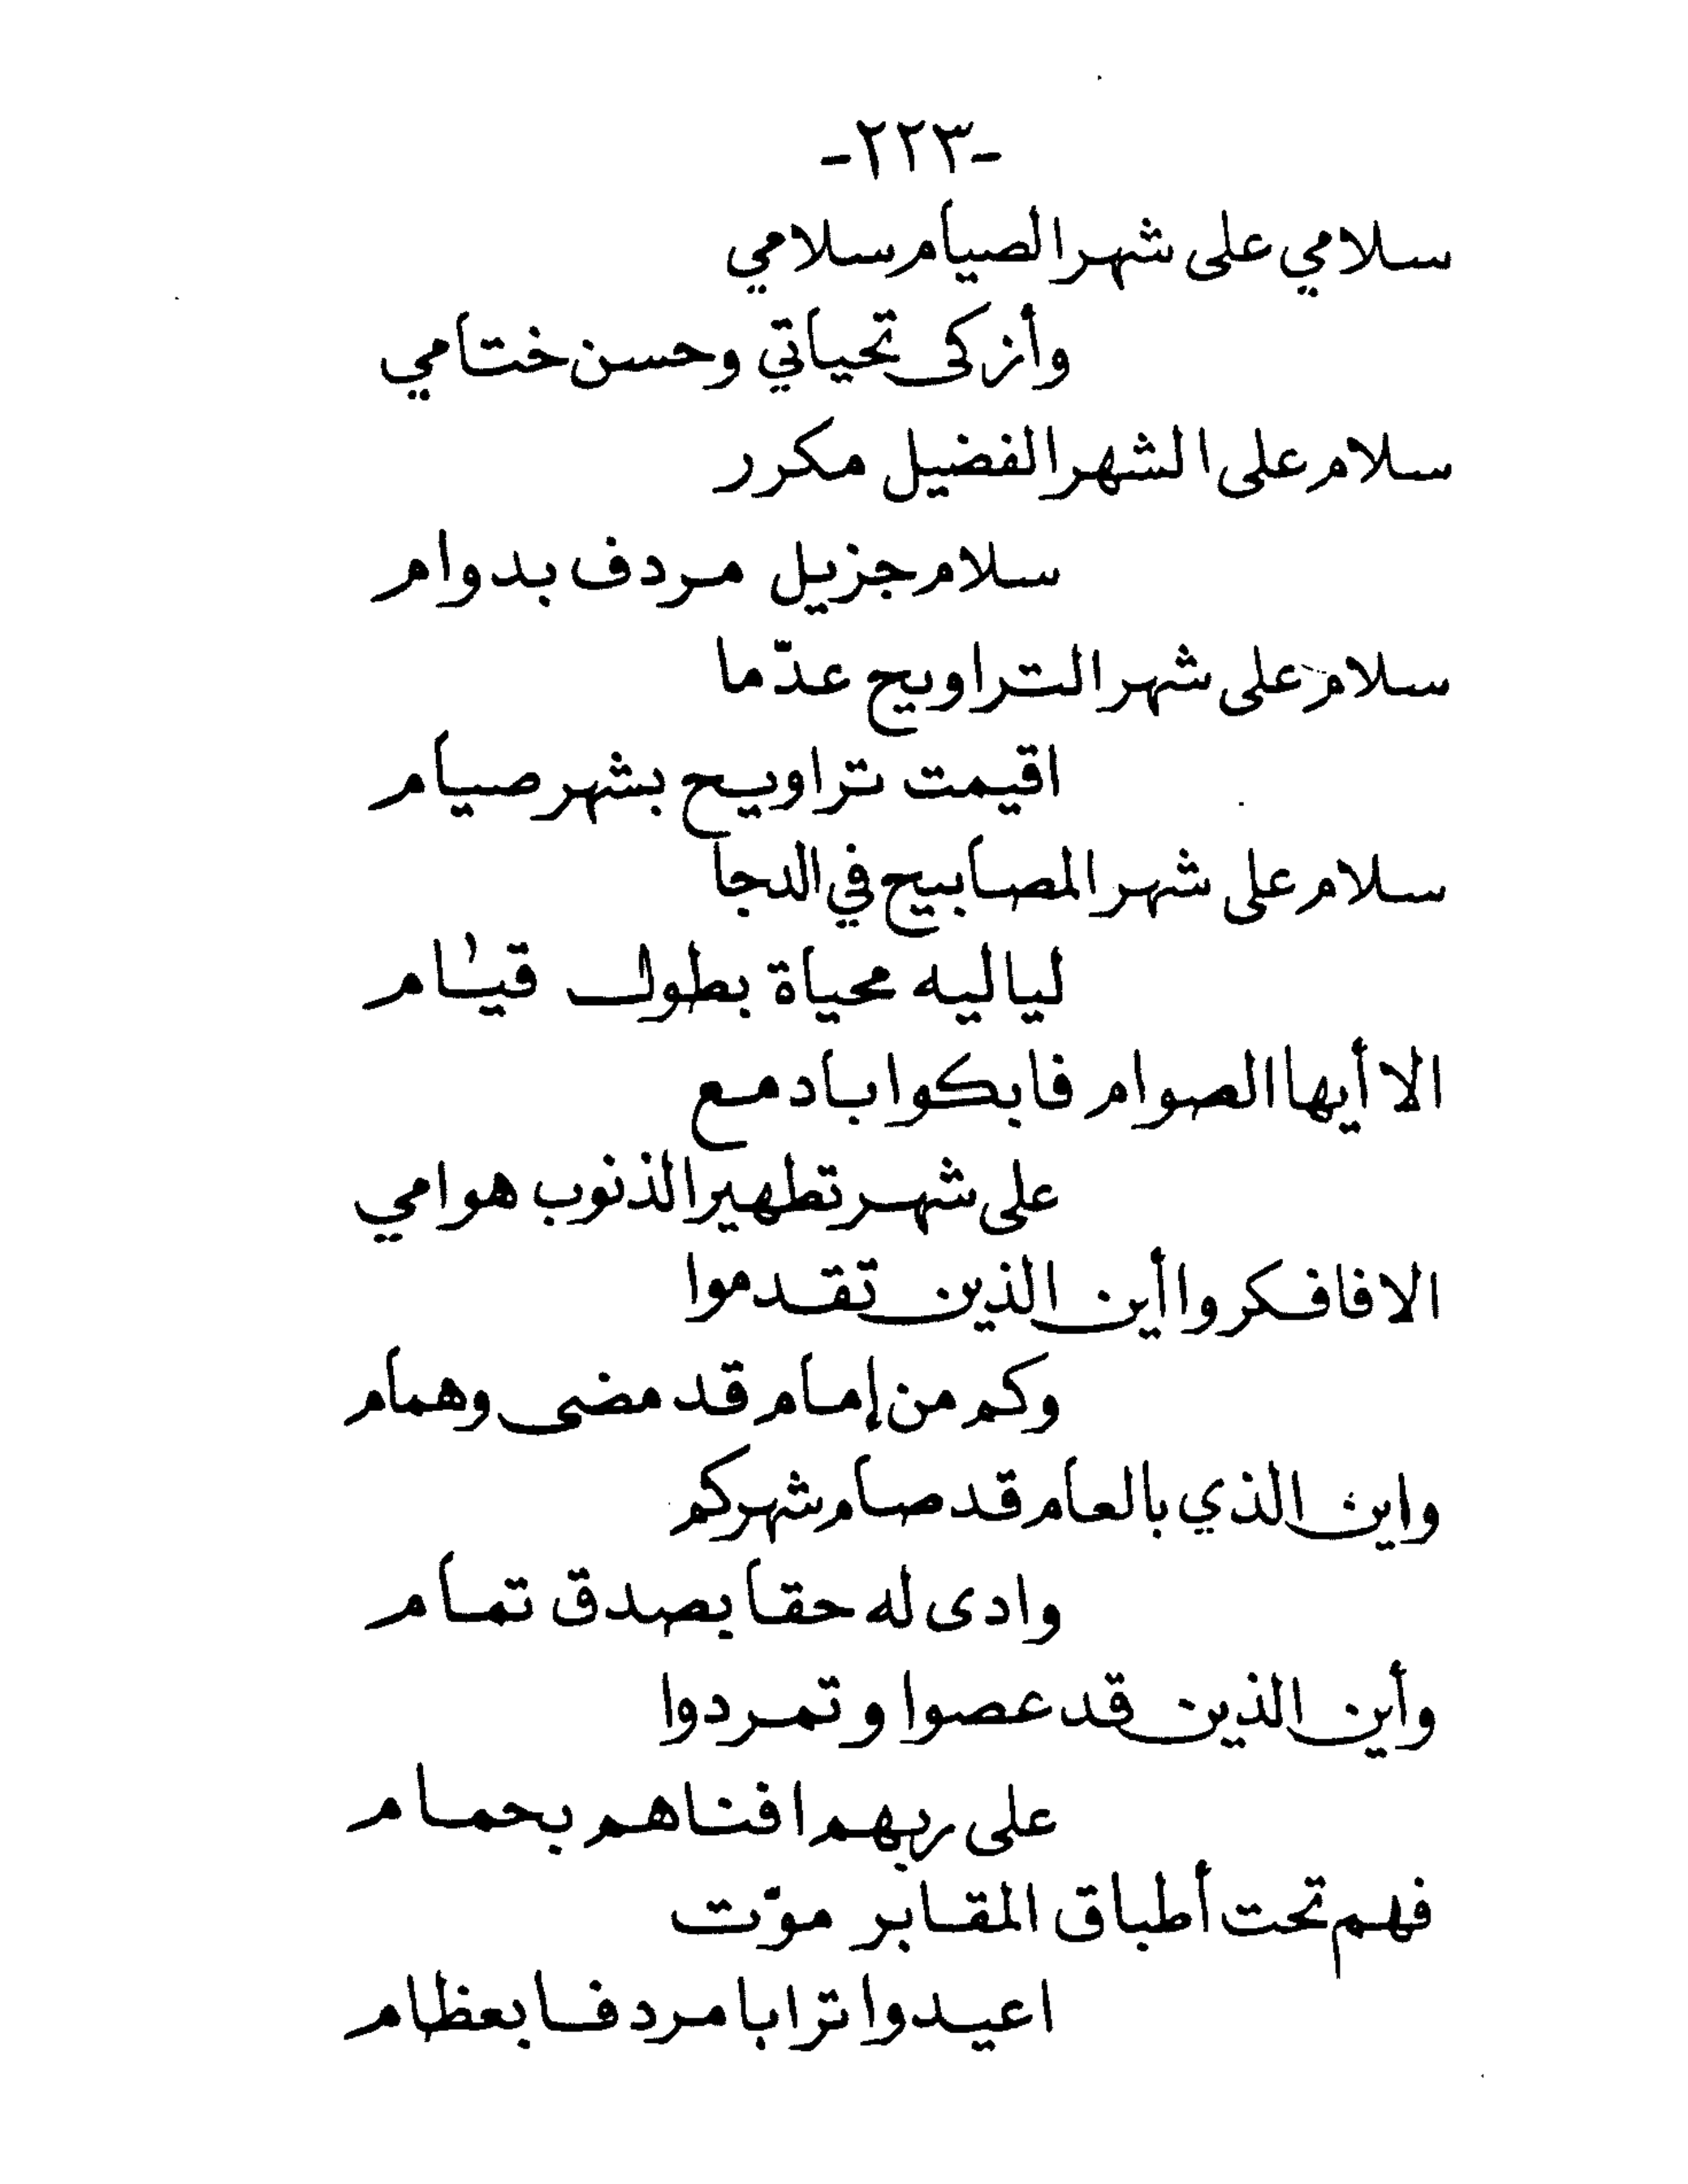 -٢٢٣-
سلامي على شهر الصيام سلامي
وأزكى تحياتي وحسن ختامي
سلام على الشهر الفضيل مكرر
سلام جزيل مردف بدوام
سلام على شهر التراويح عدّما
اقيمت تراويح بشهر صيام
سلام على شهر المصابيح في الدجا
لياليه محياة بطول قيام
الا أيها الصوام فابكوا بادمع
على شهر تطهير الذنوب هوامي
الا فافكروا أين الذين تقدموا
وكم من إمام قد مضى وهمام
واين الذي بالعام قد صام شهركم
وادى له حقا بصدق تمام
وأين الذين قد عصوا وتمردوا
على ربهم افناهم بحمام
فهم تحت أطباق المقابر موّت
اعيدوا ترابا مردفا بعظام